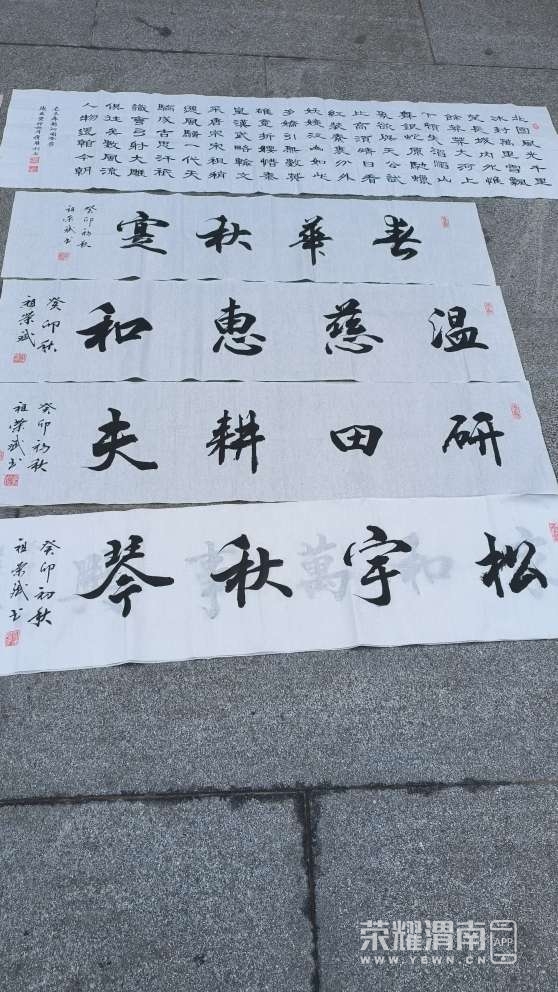 北國風光千里
冰封萬里雪飄
望長城内外惟
餘莽莽大河上
下頓失滔滔山
舞銀蛇原馳蠟
象欲與天公試
比高須晴日看
紅裝素裹分外
妖嬈江山如此
多嬌引無數英
雄竟折腰惜秦
皇漢武略輸文
采唐宗宋祖稍
遜風騷一代天
驕成吉思汗祇
識彎弓射大雕
俱往矣數風流
人物還看今朝
春華秋寔
癸卯初秋
祖荣斌书
温慈惠和
癸卯秋
祖荣斌
研田耕夫
癸卯初秋
祖荣斌书
松宇秋琴
癸卯初秋
祖荣斌书
荣耀渭南 APP
WWW.YEWN.CN